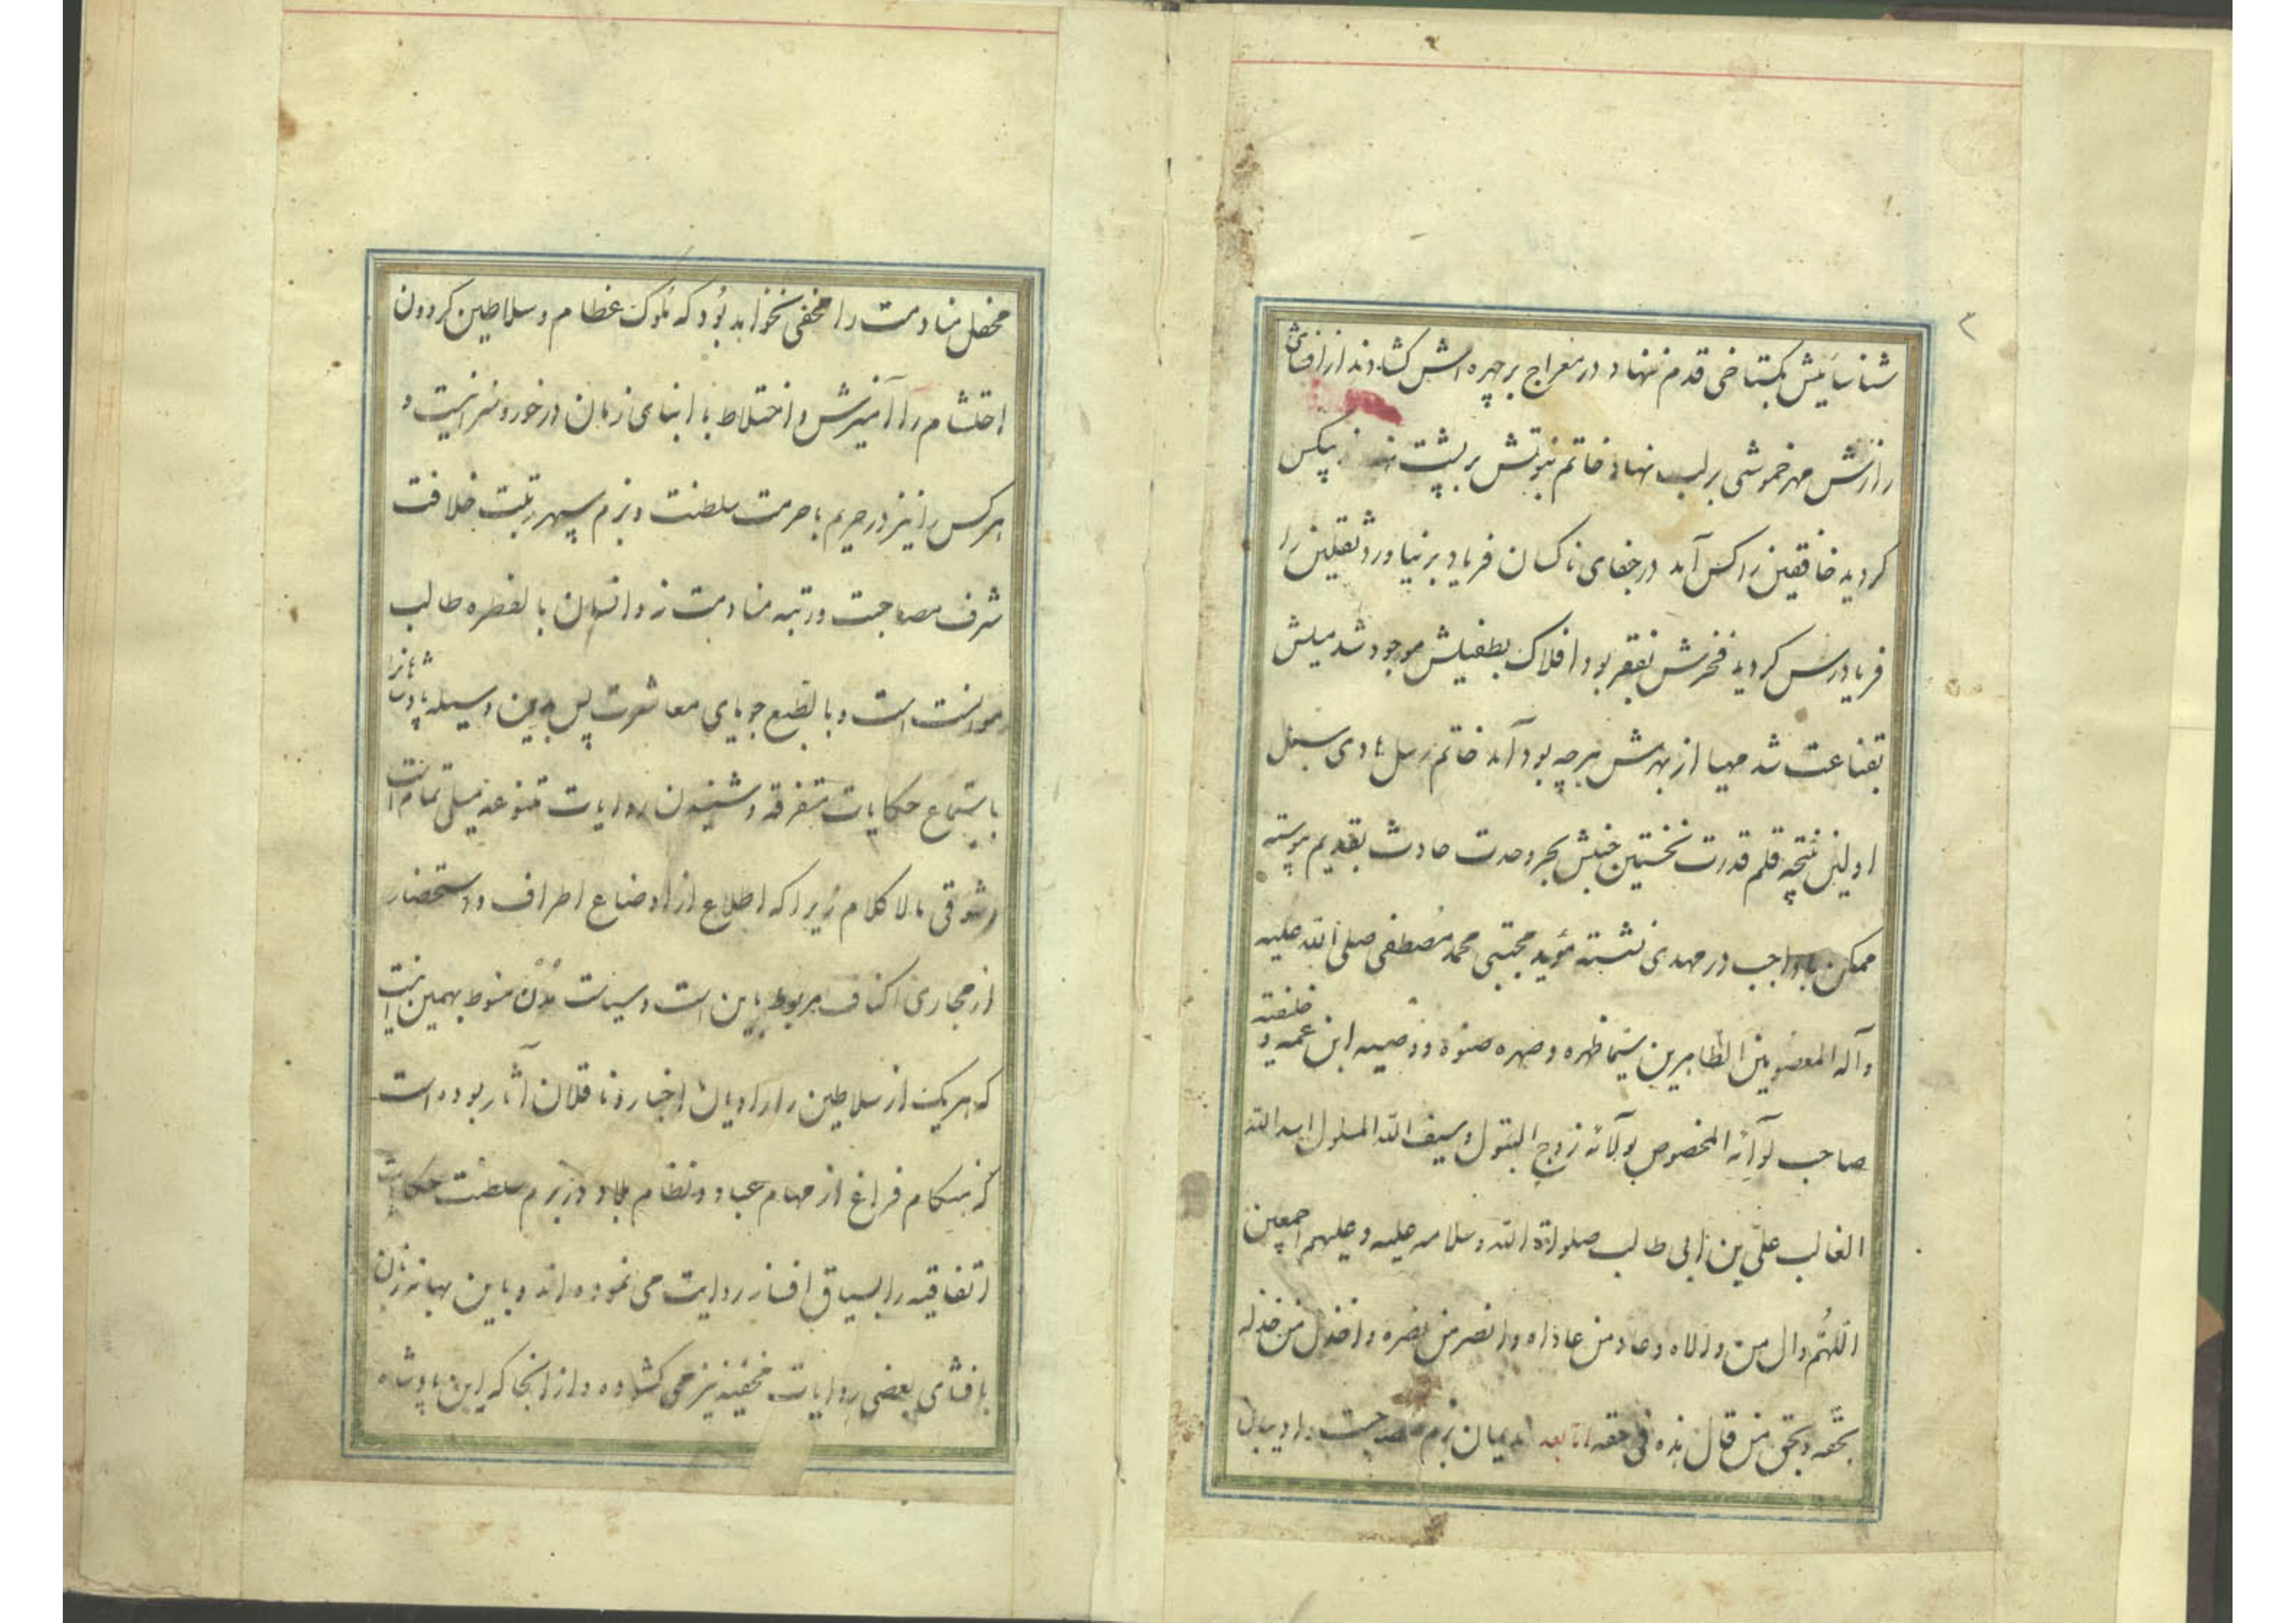 ۳
شناسائیش بگستاخی قدم ننهاد در معراج بر چهره اش گشادند از افشای
رازش مهر خموشی بر لب نهاد خاتم نبوتش بر پشت بیکس
کردید خافقین را کس آمد در جفای ناکسان فریاد بر نیاورد ثقلین را
فریادرس کردید فخرش بفقر بود افلاک بطفیلش موجود شد میلش
بقناعت شد مهیا از بهرش هر چه بود آمد خاتم رسل هادی سبل
اولین نتیجه قلم قدرت نخستین جنبش بحر وحدت حادث بقدیم پیوسته
ممکن با واجب در مهدی نشسته مؤید مجتبی محمد مصطفی صلی الله علیه
وآله المعصومین الطاهرین سیما ظهره و صهره صنوه و وصیه ابن عمه و خلیفته
صاحب لوآئه المخصوص بولائه زوج البتول و سیف الله المسلول اسد الله
الغالب علی بن ابی طالب صلوة الله و سلامه علیه و علیهم اجمعین
اللهم وال من والاه و عاد من عاداه وانصر من نصره واخذل من خذله
بحقه و بحق من قال هذه فی حقه اما بعد ندیمان بزم مصاحبت و ادیبان
محفل منادمت را مخفی نخواهد بود که ملوک عظام و سلاطین کردون
احتشام را آمیزش و اختلاط با ابنای زمان درخور و سزا نیست و
هر کس را نیز در حریم با حرمت سلطنت و بزم سپهر رتبت خلافت
شرف مصاحبت و رتبه منادمت نه و انسان بالفطره طالب
موانست است و بالطبع جویای معاشرت پس بدین وسیله پادشاهانرا
باستماع حکایات متفرقه و شنیدن روایات متنوعه میلی تمام است
و شوقی مالا کلام زیرا که اطلاع از اوضاع اطراف و استحضار
از مجاری اکناف مربوط باین است و سیاست مدن منوط بهمین اینست
که هریک از سلاطین را راویان اخبار و ناقلان آثار بوده است
که هنگام فراغ از مهام عباد و نظام بلاد در بزم سلطنت حکایات
اتفاقیه را بسیاق افسانه روایت می نموده اند و باین بهانه زبان
بافشای بعضی روایات مخفیه نیز می کشاده و از آنجا که این پادشاه